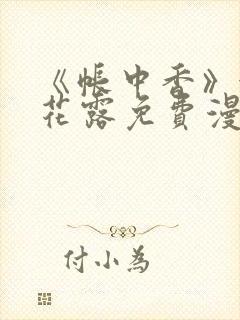 《帐中香》
花露免费漫
付小为